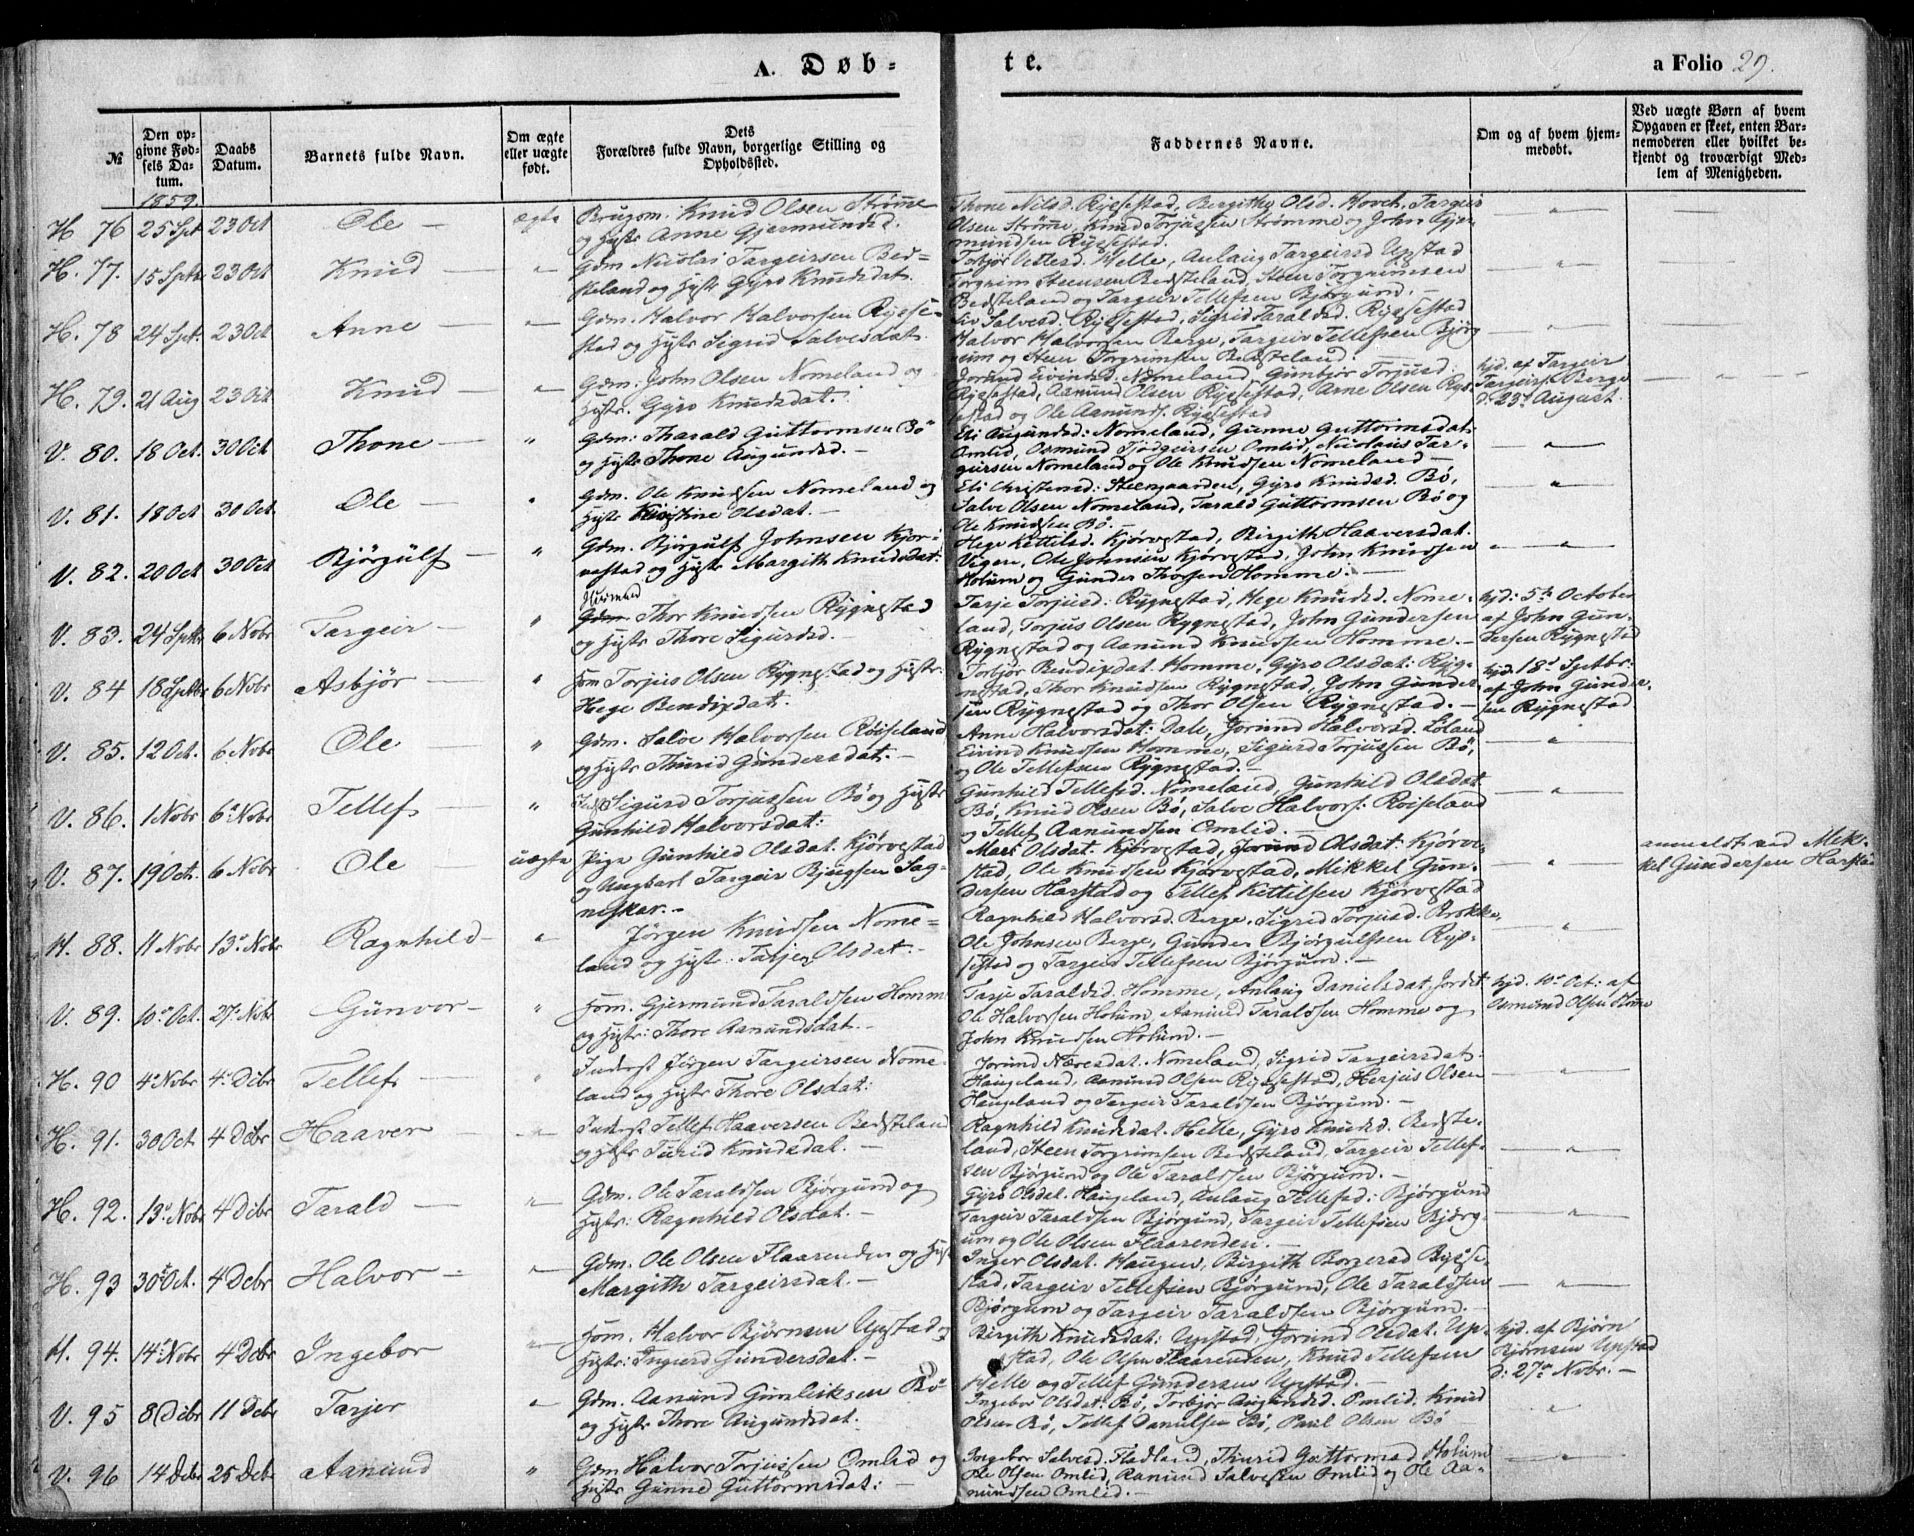 A. Døb-
te.
a Folio 29.
№
Den op-
givne Fød-
sels Da-
tum.
Daabs
Datum.
Barnets fulde Navn.
Om ægte
eller uægte
født.
Dets
Forældres fulde Navn, borgerlige Stilling og
Opholdssted.
Faddernes Navne.
Om og af hvem hjem-
medøbt.
Ved uægte Børn af hvem
Opgaven er skeet, enten Bar-
nemoderen eller hvilket be-
kjendt og troværdigt Med-
lem af Menigheden.
1859.
H 76 25 Spt 23 Oct Ole — ægte Brugsm. Knud Olsen Strømme
og Hustr Anne Gjermundsd.
Thone Nilsd. Rysestad, Birgithe Olsd. Hovet, Targeir
Olsen Strømme, Knud Torjussen Strømme og John Gjer-
mundsen Ryssestad.
H. 77. 15 Sptr 23 Oct Knud — Gdm. Nicolai Targeirsen Bed-
steland og Hustr Gyro Knudsdat.
Torbjør Vetlesd. Helle, Aulaug Targeirsd Upstad
Torgrim Steensen Bedsteland, Steen Torgrimsen
Bedsteland og Targeir Tellefsen Bjørgum. —
H. 78 24 Spt. 23 Oct Anne — Gdm. Halvor Halvorsen Rysse-
stad og Hustr Sigrid Salvesdat.
Liv Salvesd. Rysestad, Sigrid Taraldsd. Rysestad
Halvor Halvorsen Berge, Targeir Tellefsen Bjørg
um og Steen Torgrimsen Bedsteland.
H. 79. 21 Aug 23 Oct Knud — Gdm. John Olsen Nomeland og
Hustr. Gyro Knudsdat.
Jorund Eivindsd. Nomeland, Gunbjør Torjusd.
Rysestad, Aanund Olsen Rysestad, Arne Olsen Rys-
sestad og Ole Aanunds. Rysestad
hjd. af Targeir
Targeirs. Berge
d. 23d August.
V. 80. 18 Oct. 30 Oct Thone — Gdm: Tharald Guttormsen Bø
og Hustr Thone Augundsd. —
Eli Augundsd: Nomeland, Gunne Guttormsdat:
Omlid, Osmund Tjødgeirsen Omlid, Nicolaus Tar-
geirsen Nomeland og Ole Knudsen Nomeland —
V. 81. 18 Oct 30 Oct. Ole — Gdm. Ole Knudsen Nomeland og
Hustr Kirstine Olsdat. —
Eli Christensd: Steengaarden, Gyro Knudsd. Bø,
Salve Olsen Nomeland, Tarald Guttormsen Bø og
Ole Knudsen Bø. —
V. 82. 20 Oct 30 Oct Bjørgulf — Gdm. Bjørgulf Johnsen Kjør-
vestad og Hustr Margith Knudsdat.
Hege Kettilsd. Kjørvestad, Birgith Haaversdat.
Viger, Ole Johnsen Kjørvestad, John Knudsen
Holum og Gunder Thorsen Homme. —
V. 83. 24 Sptbr 6 Nobr Targeir — Huusmand
Gdm. Thor Knudsen Rygnestad
og Hustr Thore Sigurdsd.
Tarje Torjusd: Rygnestad, Hege Knudsd. Nome-
land, Torjus Olsen Rygnestad, John Gundersen
Rygnestad og Aanund Knudsen Homme. —
hjd: 5te October
af John Gun-
dersen Rygnestad
V. 84 18 Sptbr 6 Nobr Asbjør — Hm Torjus Olsen Rygnestad og Hustr:
Hege Bendixdat.
Torbjør Bendixdat. Homme, Gyro Olsdat: Ryg-
nestad, Thor Knudsen Rygnestad, John Gunder-
sen Rygnestad og Thor Olsen Rygnestad. —
hjd. 18d Sptbr:
af John Gunder-
sen Rygnestad
V. 85. 12 Oct. 6 Nobr Ole — Gdm. Salve Halvorsen Røiseland
og Hustr Thurid Gundersdat. —
Anne Halvorsdat: Dale, Jorund Halvorsd. Loland
Eivind Knudsen Homme, Sigurd Torjussen Bø,
og Ole Tellefsen Rygnestad. —
V. 86. 1 Nobr 6 Nobr Tellef — Sigurd Torjussen Bø og Hustr
Gunhild Halvorsdat:
Gunhild Tellefsd. Nomeland, Gunhild Olsdat
Bø, Knud Olsen Bø, Salve Halvors. Røiseland
og Tellef Aanundsen Omlid. —
V. 87. 19 Oct. 6 Nobr Ole — uægte Pige Gunhild Olsdat. Kjørvestad
og Ungkarl Targeir Bjugsen Lag-
neskar. —
Mari Olsdat. Kjørvestad, Jorund Olsdat: Kjørve-
stad, Ole Knudsen Kjørvestad, Mikkel Gun-
dersen Harstad og Tellef Kettilsen Kjørvestad
anmeldt ved Mik-
kel Gundersen Harstad
H. 88. 11 Nobr 13d Nobr Ragnhild — Jørgen Knudsen Nome-
land og Hustr: Tarjer Olsdat. —
Ragnhild Halvorsd. Berge, Sigrid Torjusd. Brokke,
Ole Johnsen Berge, Gunder Bjørgulfsen Rys-
sestad og Targeir Tellefsen Bjørgum. —
V. 89. 10d Oct. 27d Nobr Gunvor — Hm. Gjermund Taraldsen Homme
og Hustr: Thore Aanundsdat. —
Tarje Taraldsd. Homme, Aulaug Danielsdat, Jordet
Ole Halvorsen Holum, Aanund Taraldsen Homme og
John Knudsen Holum. —
hjd. 10d Oct: af
Osmund Olsen Homme
H. 90 4d Nobr 4d Dcbr Tellef — Inderst Jørgen Targeirsen Nome-
land og Hustr Thore Olsdat:
Jorund Næresdat. Nomeland, Sigrid Targeirsdat.
Haugeland, Aanund Olsen Ryssestad, Herjus Olsen
Haugeland og Targeir Taraldsen Bjørgum. —
H. 91. 30 Oct. 4 Dcbr Haaver — Inderst Tellef Haaversen Bedsteland
og Hustr Turid Knudsdat. —
Ragnhild Knudsdat. Helle, Gyro Knudsd. Bedste-
land, Steen Torgrimsen Bedsteland, Targeir Tellef-
sen Bjørgum og Ole Taraldsen Bjørgum. —
H. 92. 13d Nobr 4 Dcbr Tarald — Gdm. Ole Taraldsen Bjørgum og
Hustr: Ragnhild Olsdat. —
Gyro Olsdat. Haugeland, Aulaug Tellefsd: Bjørgum
Targeir Taraldsen Bjørgum, Targeir Tellefsen Bjørg-
um og Ole Olsen Flaarenden. —
H. 93 30d Oct. 4 Dcbr Halvor — Gdm. Ole Olsen Flaarenden og Hustr
Margith Targeirsdat. —
Inger Olsdat. Haugen, Birgith Borgersd Rysse-
stad, Targeir Tellefsen Bjørgum, Ole Taraldsen
Bjørgum og Targeir Taraldsen Bjørgum. —
H. 94. 14d Nobr 4 Dcbr Ingebor Hm. Halvor Bjørnsen Upstad og
Hustr: Ingierd Gundersdat. —
Birgith Knudsdat: Upstad, Jorund Olsdat. Up-
stad, Ole Olsen Flaarenden, Knud Tellefsen
Helle og Tellef Gundersen Upstad. —
hjd. af Bjørn
Bjørnsen Upstad
d: 27d Nobr. —
V. 95 8 Dcbr 11 Dcbr Tarjer Gdm. Aanund Gunleiksen Bø
og Hustr Thore Augundsdat.
Ingebor Olsdat: Bø, Torbjør Augundsd. Omlid. Knud
Olsen Bø, Tellef Danielsen Bø, Paul Olsen Bø
V. 96 14 Dcbr 25 Dcbr Aanund Gdm Halvor Torjussen Omlid og
Hustr Gunne Guttormsdat: —
Ingebor Salvesd. Fladland, Thurid Guttormsd. Holum
Ole Olsen Omlid, Aanund Salvesen Omlid og Ole Aa-
nundsen Omlid. —